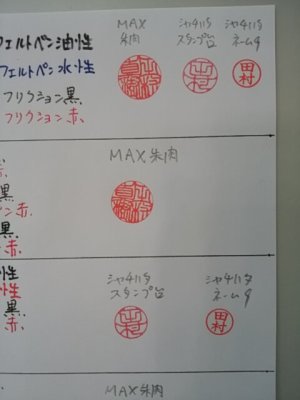 フェルトペン油性
フェルトペン水性
フリクション黒
フリクション赤
MAX
朱肉
シャチハタ
スタンプ台
シャチハタ
ネーム9
田村
MAX朱肉
赤
黒
ン赤
黒
赤
性
性
黒
赤
シャチハタ
スタンプ台
シャチハタ
ネーム9
田村
MAX朱肉